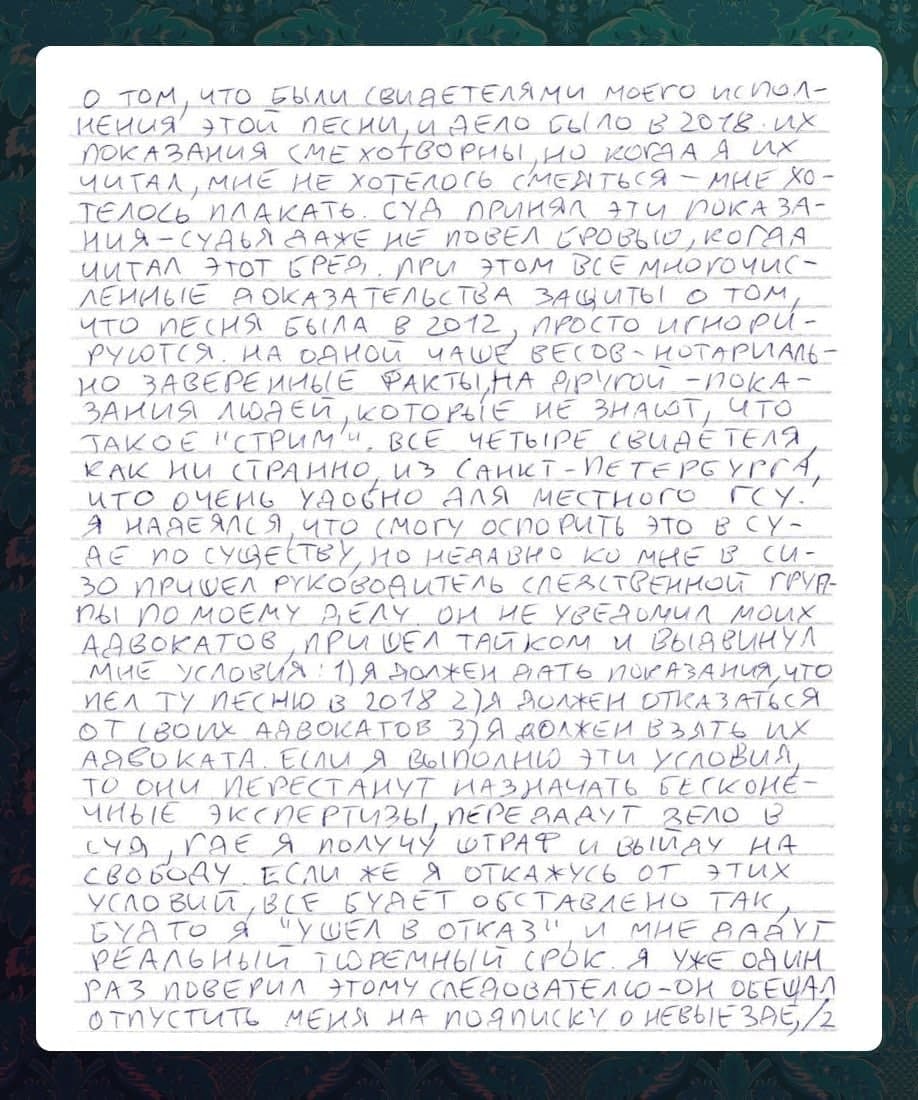 О ТОМ, ЧТО БЫЛИ СВИДЕТЕЛЯМИ МОЕГО ИСПОЛ-
НЕНИЯ ЭТОЙ ПЕСНИ, И ДЕЛО БЫЛО В 2018. ИХ
ПОКАЗАНИЯ СМЕХОТВОРНЫ, НО КОГДА Я ИХ
ЧИТАЛ, МНЕ НЕ ХОТЕЛОСЬ СМЕЯТЬСЯ – МНЕ ХО-
ТЕЛОСЬ ПЛАКАТЬ. СУД ПРИНЯЛ ЭТИ ПОКАЗА-
НИЯ – СУДЬЯ ДАЖЕ НЕ ПОВЕЛ БРОВЬЮ, КОГДА
ЧИТАЛ ЭТОТ БРЕД. ПРИ ЭТОМ ВСЕ МНОГОЧИС-
ЛЕННЫЕ ДОКАЗАТЕЛЬСТВА ЗАЩИТЫ О ТОМ,
ЧТО ПЕСНЯ БЫЛА В 2012, ПРОСТО ИГНОРИ-
РУЮТСЯ. НА ОДНОЙ ЧАШЕ ВЕСОВ - НОТАРИАЛЬ-
НО ЗАВЕРЕННЫЕ ФАКТЫ, НА ДРУГОЙ – ПОКА-
ЗАНИЯ ЛЮДЕЙ, КОТОРЫЕ НЕ ЗНАЮТ, ЧТО
ТАКОЕ "СТРИМ". ВСЕ ЧЕТЫРЕ СВИДЕТЕЛЯ,
КАК НИ СТРАННО, ИЗ САНКТ-ПЕТЕРБУРГА,
ЧТО ОЧЕНЬ УДОБНО ДЛЯ МЕСТНОГО ГСУ.
Я НАДЕЯЛСЯ, ЧТО СМОГУ ОСПОРИТЬ ЭТО В СУ-
ДЕ ПО СУЩЕСТВУ, НО НЕДАВНО КО МНЕ В СИ-
ЗО ПРИШЕЛ РУКОВОДИТЕЛЬ СЛЕДСТВЕННОЙ ГРУП-
ПЫ ПО МОЕМУ ДЕЛУ. ОН НЕ УВЕДОМИЛ МОИХ
АДВОКАТОВ, ПРИШЕЛ ТАЙКОМ И ВЫДВИНУЛ
МНЕ УСЛОВИЯ: 1) Я ДОЛЖЕН ДАТЬ ПОКАЗАНИЯ, ЧТО
ПЕЛ ТУ ПЕСНЮ В 2018 2) Я ДОЛЖЕН ОТКАЗАТЬСЯ
ОТ СВОИХ АДВОКАТОВ 3) Я ДОЛЖЕН ВЗЯТЬ ИХ
АДВОКАТА. ЕСЛИ Я ВЫПОЛНЮ ЭТИ УСЛОВИЯ,
ТО ОНИ ПЕРЕСТАНУТ НАЗНАЧАТЬ БЕСКОНЕ-
ЧНЫЕ ЭКСПЕРТИЗЫ, ПЕРЕДАДУТ ДЕЛО В
СУД, ГДЕ Я ПОЛУЧУ ШТРАФ И ВЫЙДУ НА
СВОБОДУ. ЕСЛИ ЖЕ Я ОТКАЖУСЬ ОТ ЭТИХ
УСЛОВИЙ, ВСЕ БУДЕТ ОБСТАВЛЕНО ТАК,
БУДТО Я "УШЕЛ В ОТКАЗ", И МНЕ ДАДУТ
РЕАЛЬНЫЙ ТЮРЕМНЫЙ СРОК. Я УЖЕ ОДИН
РАЗ ПОВЕРИЛ ЭТОМУ СЛЕДОВАТЕЛЮ – ОН ОБЕЩАЛ
ОТПУСТИТЬ МЕНЯ НА ПОДПИСКУ О НЕВЫЕЗДЕ, /2